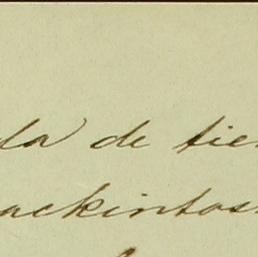 la de tie
ackintos